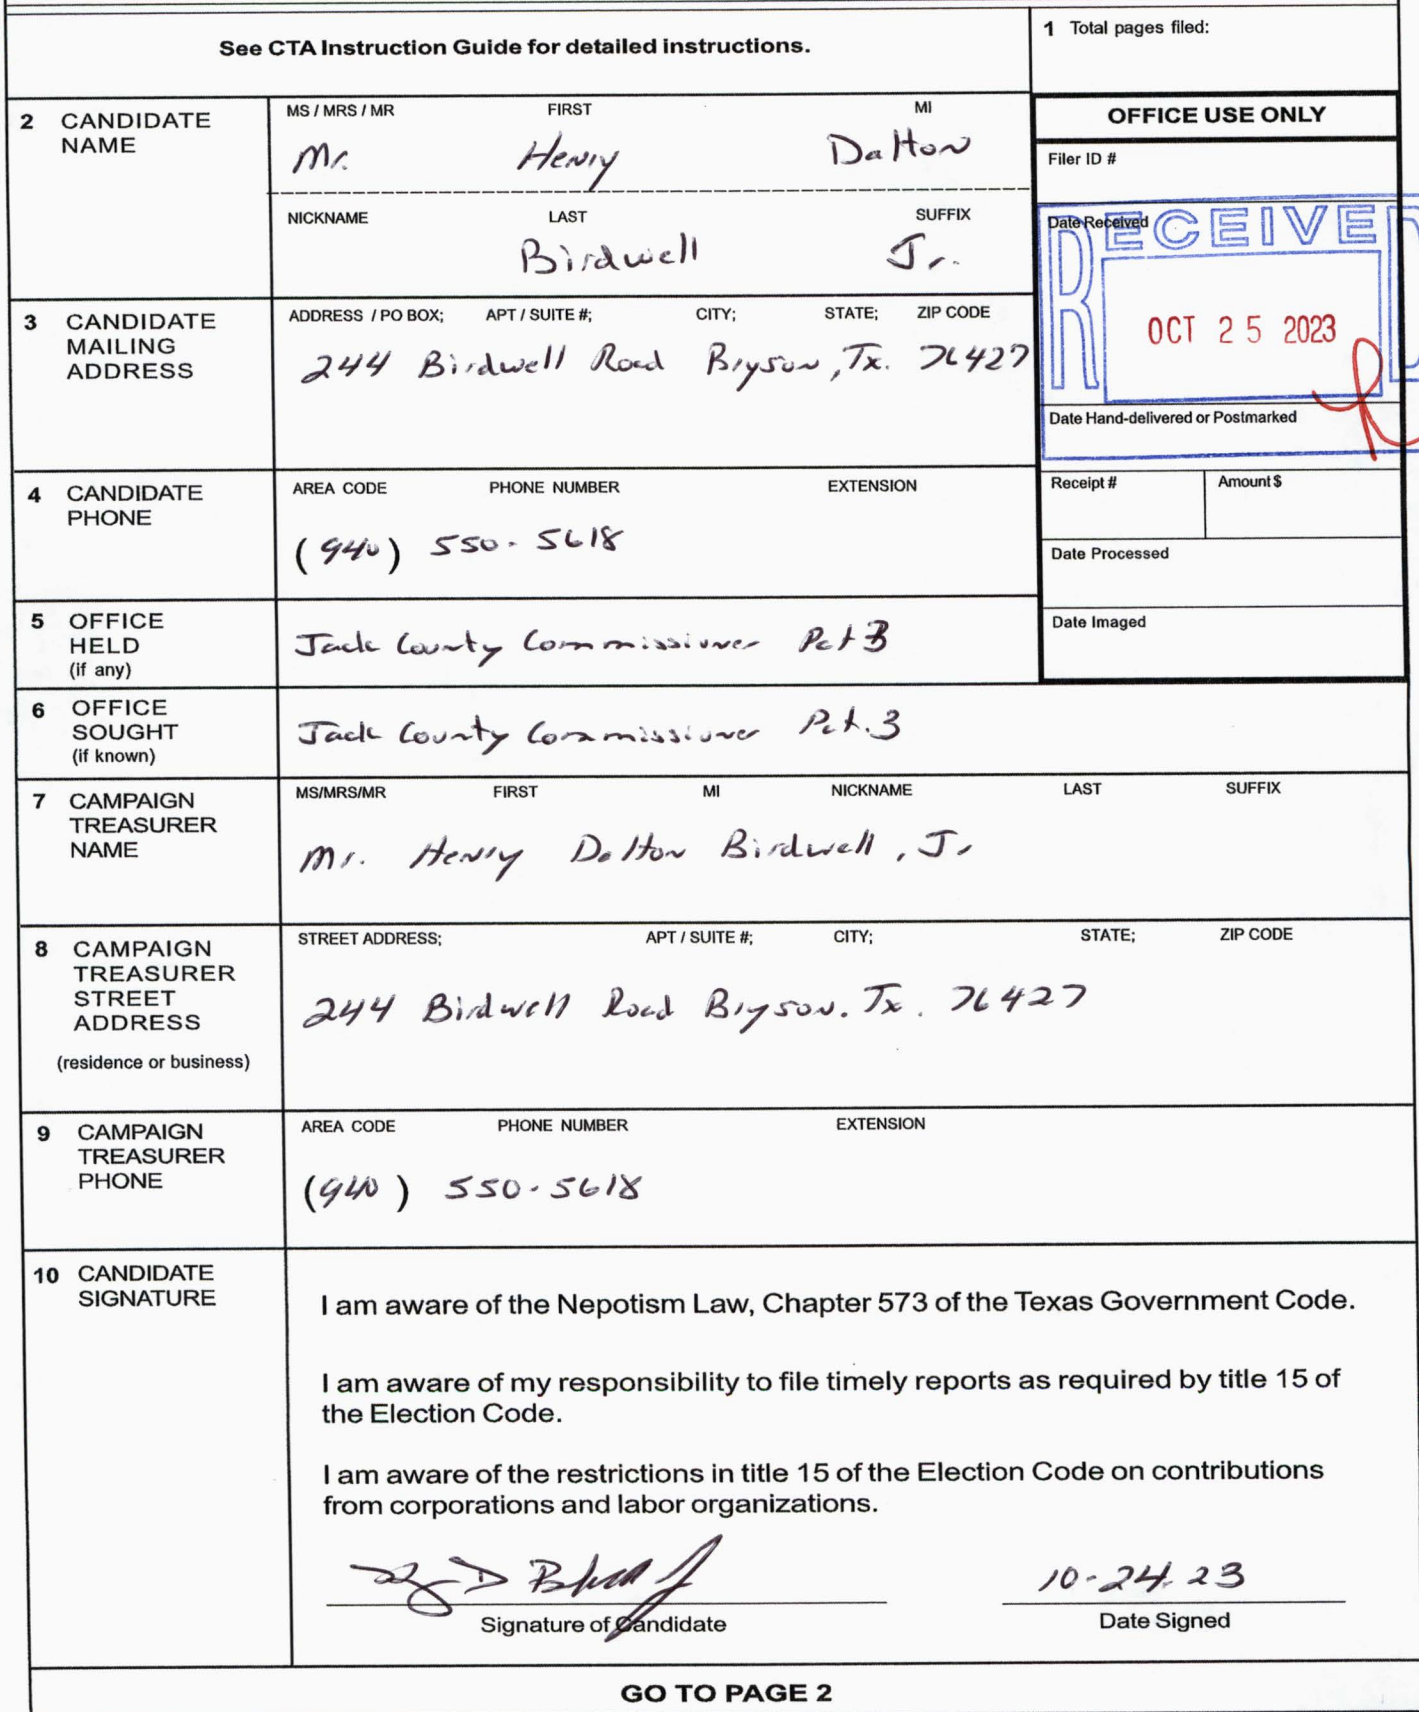 See CTA Instruction Guide for detailed instructions.
1 Total pages filed:
2 CANDIDATE NAME
MS / MRS / MR FIRST MI
Mr. Henry Dalton
NICKNAME LAST SUFFIX
Birdwell Jr.
OFFICE USE ONLY
Filer ID #
Date Received
RECEIVED
OCT 25 2023
Date Hand-delivered or Postmarked
Receipt # Amount $
Date Processed
Date Imaged
3 CANDIDATE MAILING ADDRESS
ADDRESS / PO BOX; APT / SUITE #; CITY; STATE; ZIP CODE
244 Birdwell Road Bryson, Tx. 76427
4 CANDIDATE PHONE
AREA CODE PHONE NUMBER EXTENSION
(940) 550-5618
5 OFFICE HELD (if any)
Jack County Commissioner Pct 3
6 OFFICE SOUGHT (if known)
Jack County Commissioner Pct. 3
7 CAMPAIGN TREASURER NAME
MS/MRS/MR FIRST MI NICKNAME LAST SUFFIX
Mr. Henry Dalton Birdwell, Jr
8 CAMPAIGN TREASURER STREET ADDRESS
(residence or business)
STREET ADDRESS; APT / SUITE #; CITY; STATE; ZIP CODE
244 Birdwell Road Bryson. Tx. 76427
9 CAMPAIGN TREASURER PHONE
AREA CODE PHONE NUMBER EXTENSION
(940) 550-5618
10 CANDIDATE SIGNATURE
I am aware of the Nepotism Law, Chapter 573 of the Texas Government Code.
I am aware of my responsibility to file timely reports as required by title 15 of
the Election Code.
I am aware of the restrictions in title 15 of the Election Code on contributions
from corporations and labor organizations.
10-24-23
Signature of Candidate Date Signed
GO TO PAGE 2